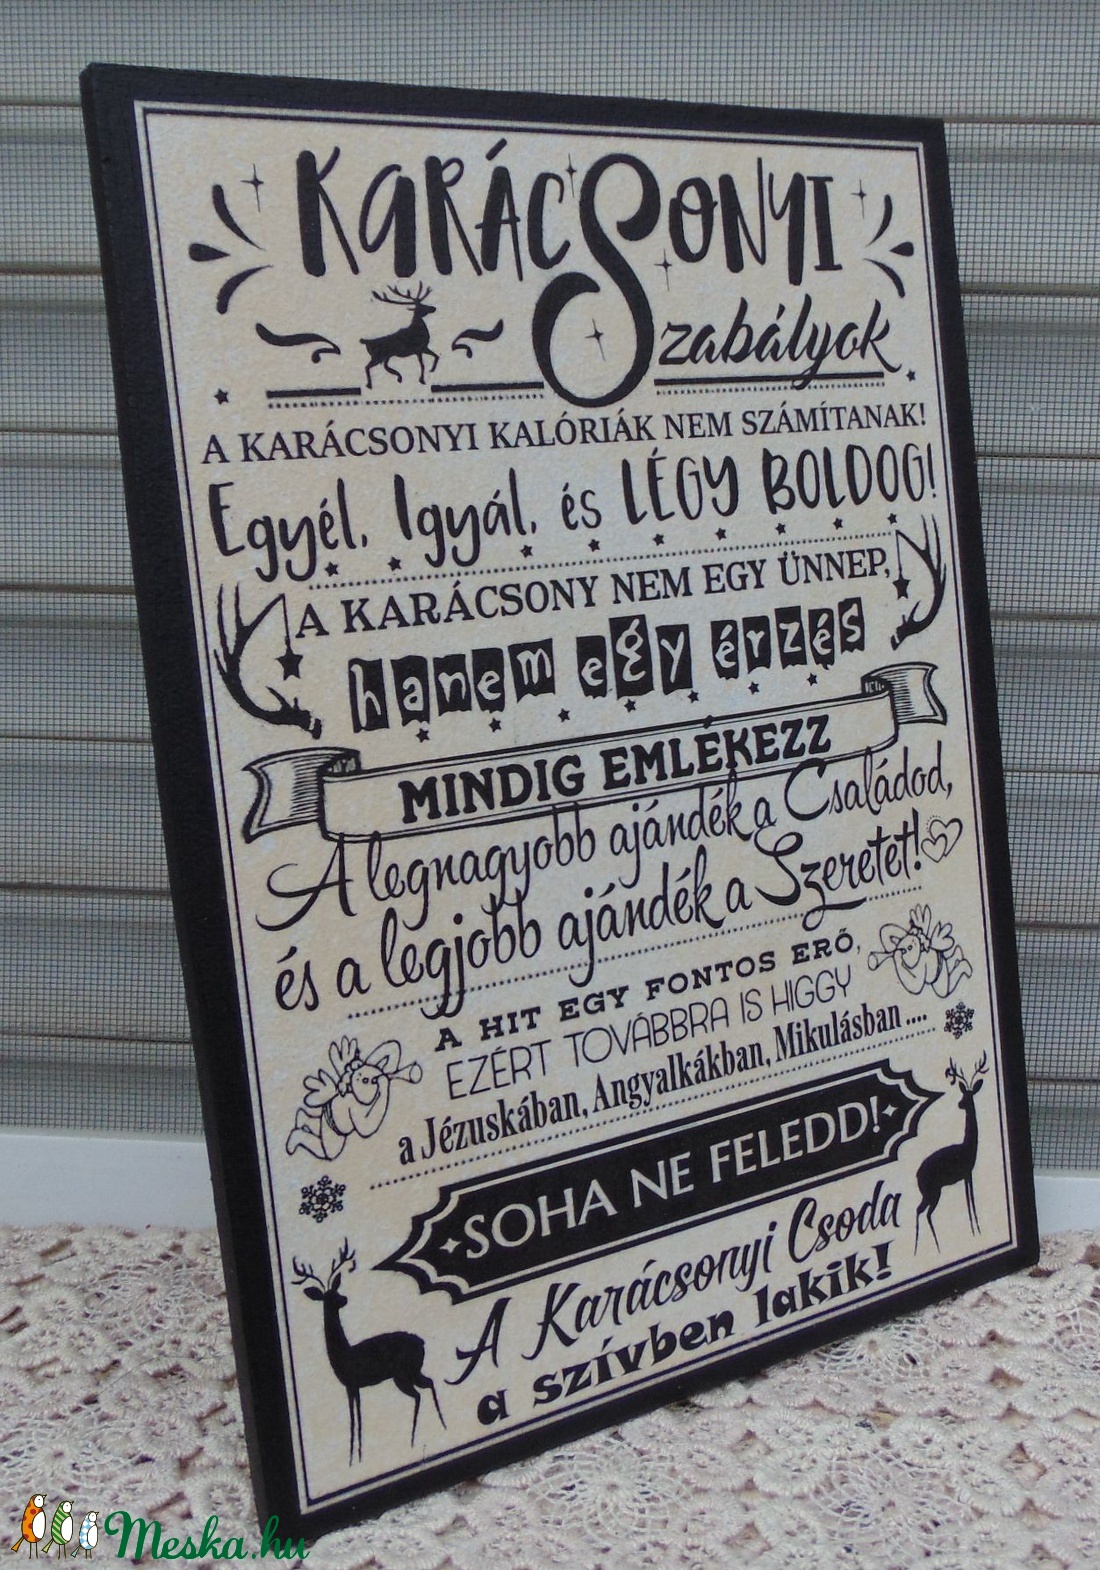 KARÁCSONYI
Szabályok
A KARÁCSONYI KALÓRIÁK NEM SZÁMÍTANAK!
Egyél, Igyál, és LÉGY BOLDOG!
A KARÁCSONY NEM EGY ÜNNEP,
hanem egy érzés
MINDIG EMLÉKEZZ
A legnagyobb ajándék a Családod,
és a legjobb ajándék a Szeretet!
A HIT EGY FONTOS ERŐ,
EZÉRT TOVÁBBRA IS HIGGY
a Jézuskában, Angyalkákban, Mikulásban....
SOHA NE FELEDD!
A Karácsonyi Csoda
a szívben lakik!
Meska.hu